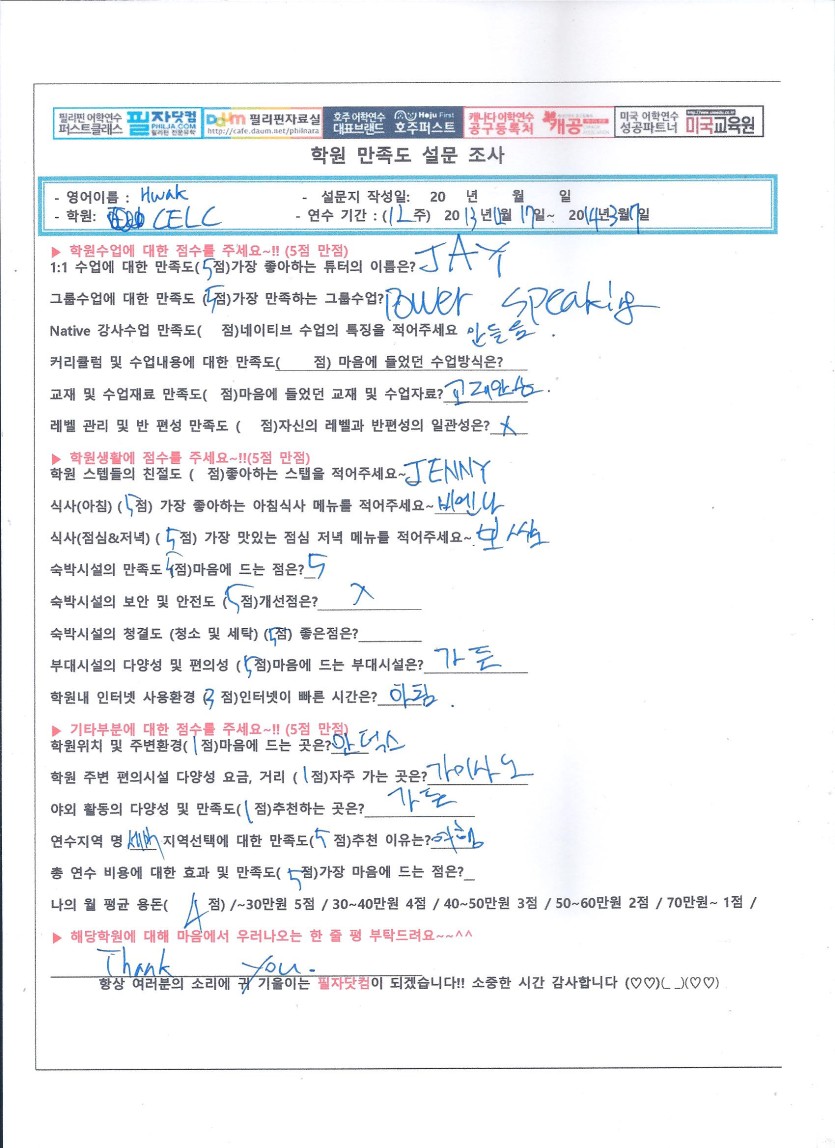 필리핀 어학연수 퍼스트클래스 필자닷컴 PHILJA.COM 필리핀 전문유학 Daum 필리핀자료실 http://cafe.daum.net/philnara 호주 어학연수 대표브랜드 Hoju First 호주퍼스트 캐나다 어학연수 공구등록처 개공 미국 어학연수 성공파트너 미국교육원
학원 만족도 설문 조사
- 영어이름 : Hwak - 설문지 작성일: 20 년 월 일
- 학원: CELC - 연수 기간 : (12주) 2013년 월 17일~ 2014년3월7일
▶ 학원수업에 대한 점수를 주세요~!! (5점 만점)
1:1 수업에 대한 만족도(5점)가장 좋아하는 튜터의 이름은? JAY
그룹수업에 대한 만족도 (5점)가장 만족하는 그룹수업? Power Speaking
Native 강사수업 만족도( 점)네이티브 수업의 특징을 적어주세요 안들음.
커리큘럼 및 수업내용에 대한 만족도( 점) 마음에 들었던 수업방식은?
교재 및 수업재료 만족도( 점)마음에 들었던 교재 및 수업자료?
레벨 관리 및 반 편성 만족도 ( 점)자신의 레벨과 반편성의 일관성은? X
▶ 학원생활에 점수를 주세요~!!(5점 만점)
학원 스텝들의 친절도 ( 점)좋아하는 스탭을 적어주세요~ JENNY
식사(아침) (5점) 가장 좋아하는 아침식사 메뉴를 적어주세요~ 비엔나
식사(점심&저녁) (5점) 가장 맛있는 점심 저녁 메뉴를 적어주세요~ 보쌈
숙박시설의 만족도(5점)마음에 드는 점은? 5
숙박시설의 보안 및 안전도 (5점)개선점은? X
숙박시설의 청결도 (청소 및 세탁) (5점) 좋은점은?
부대시설의 다양성 및 편의성 (5점)마음에 드는 부대시설은? 가든
학원내 인터넷 사용환경 (3점)인터넷이 빠른 시간은? 아침.
▶ 기타부분에 대한 점수를 주세요~!! (5점 만점)
학원위치 및 주변환경(1점)마음에 드는 곳은? 안덕스
학원 주변 편의시설 다양성 요금, 거리 (1점)자주 가는 곳은? 가이사노
야외 활동의 다양성 및 만족도(1점)추천하는 곳은? 가든
연수지역 명 세부 지역선택에 대한 만족도(5점)추천 이유는? 여행
총 연수 비용에 대한 효과 및 만족도(5점)가장 마음에 드는 점은?
나의 월 평균 용돈( 4점) /~30만원 5점 / 30~40만원 4점 / 40~50만원 3점 / 50~60만원 2점 / 70만원~ 1점 /
▶ 해당학원에 대해 마음에서 우러나오는 한 줄 평 부탁드려요~~^^
Thank you.
항상 여러분의 소리에 귀 기울이는 필자닷컴이 되겠습니다!! 소중한 시간 감사합니다 (♡♡)(_ _)(♡♡)